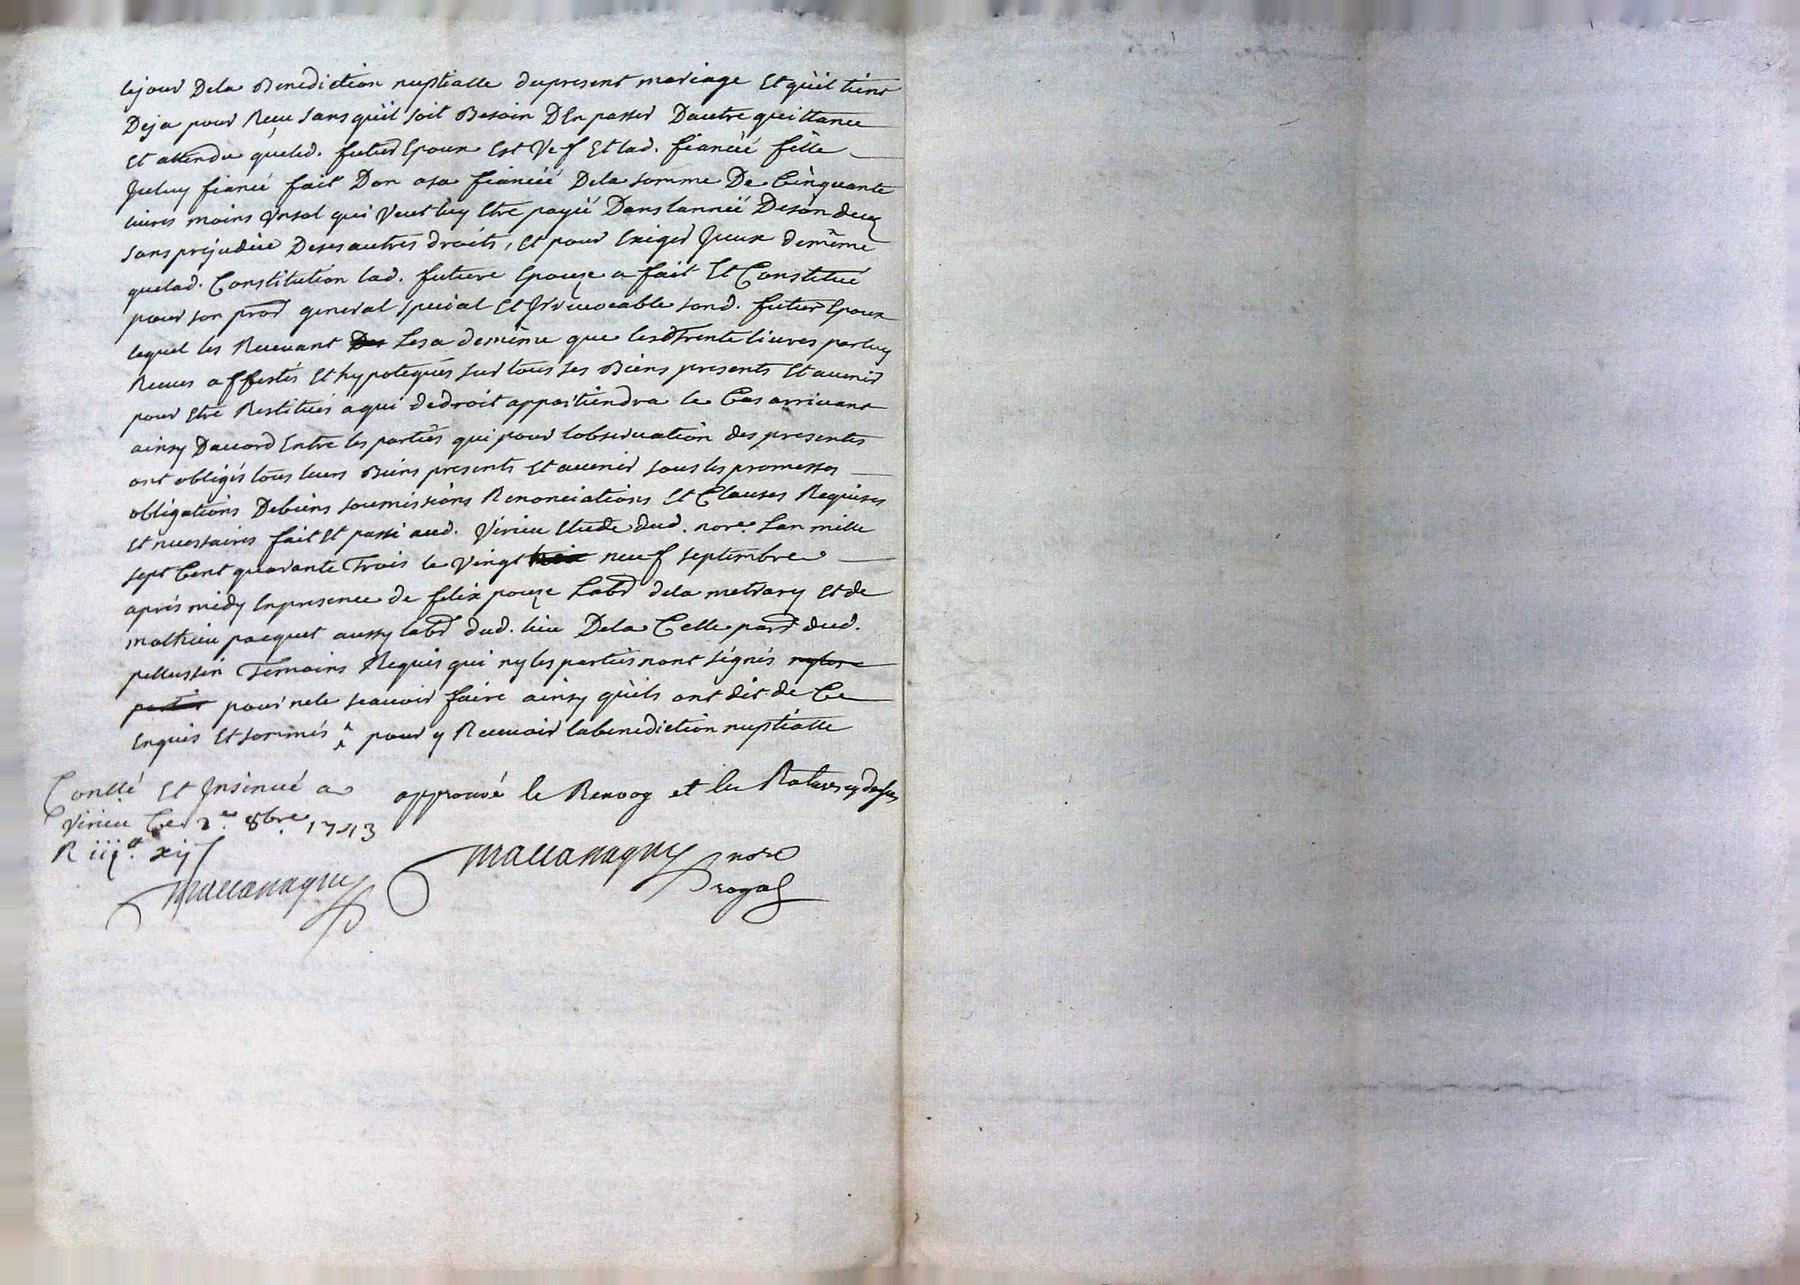 lejour Dela Benediction nuptialle dupresent mariage Et qu'il tient
Deja pour Receu sans qu'il soit Besoin D'En passer Dautre quittance
Et attendu queled. futur Epoux Est Vef Et lad. fiancéé fille
Jceluy fiancé fait Don asa fiancéé Dela somme De Cinquante
livres moins Unsol qui Veut luy Etre payéé Dans lannéé Deson deces
sans prejudice Deses autres droits, Et pour Exiger Jceux demême
quelad. Constitution lad. future Epouze a fait Et Constitué
pour son procr general special Et Jrrevocable sond. futur Epoux
lequel les Recevant Les a demême que lesd Trente livres par luy
Receues affectés Et hypotequés sur tous ses Biens presents Et avenir
pour Etre Restitués a qui de droit appartiendra le Cas arrivant
ainsy Daccord Entre les parties qui pour lobservation des presentes
ont obligés tous leurs Biens presents Et avenir sous les promesses
obligations Debiens soumissions Renonciations Et Clauses Requises
Et necessaires fait Et passé aud. Virieu Etude dud. nore. Lan mille
sept Cent quarante Trois le vingt neuf septembre
aprés midy Enpresence de felix pouze Labr dela metrary Et de
mathieu pacquet aussy labr dud. lieu Dela Celle parr dud.
pellussin Temoins Requis qui ny les parties nont signés
pour nele scavoir faire ainsy qu'ils ont dit de Ce
Enquis Et sommés ^ pour y Recevoir labenediction nuptialle
approuvé le Renvoy et les Ratures cy dessus
Conllé Et Jnsinué a
Virieu Ce 2e. 8bre. 1743
R iij tt. xij s
maccanaguy nore
royal
maccanaguy